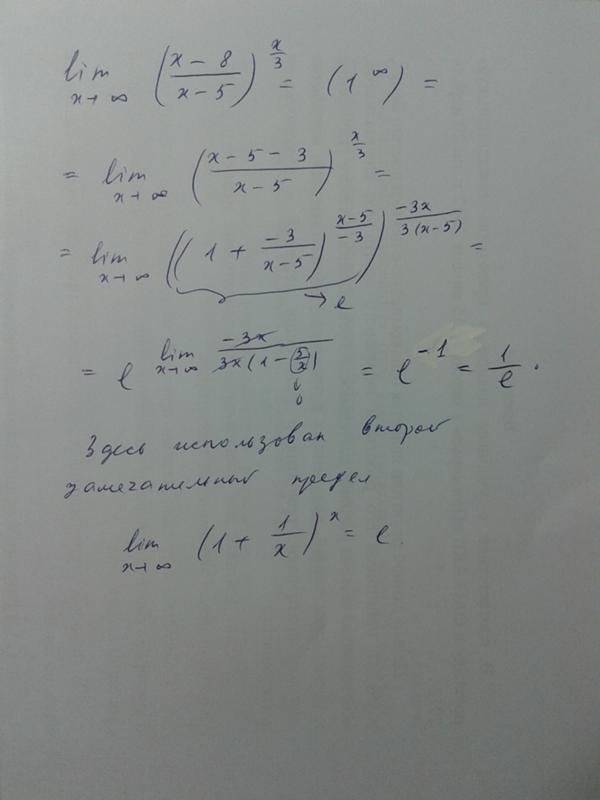 lim x→∞ ((x − 8)/(x − 5))^(x/3) = (1^∞) =
= lim x→∞ ((x − 5 − 3)/(x − 5))^(x/3) =
= lim x→∞ ((1 + (−3)/(x − 5))^((x − 5)/(−3)))^((−3x)/(3(x − 5))) =
→ e
= e^(lim x→∞ (−3x)/(3x(1 − (5/x)))) = e^(−1) = 1/e.
↓
0
Здесь использован второй
замечательный предел
lim x→∞ (1 + 1/x)^x = e.